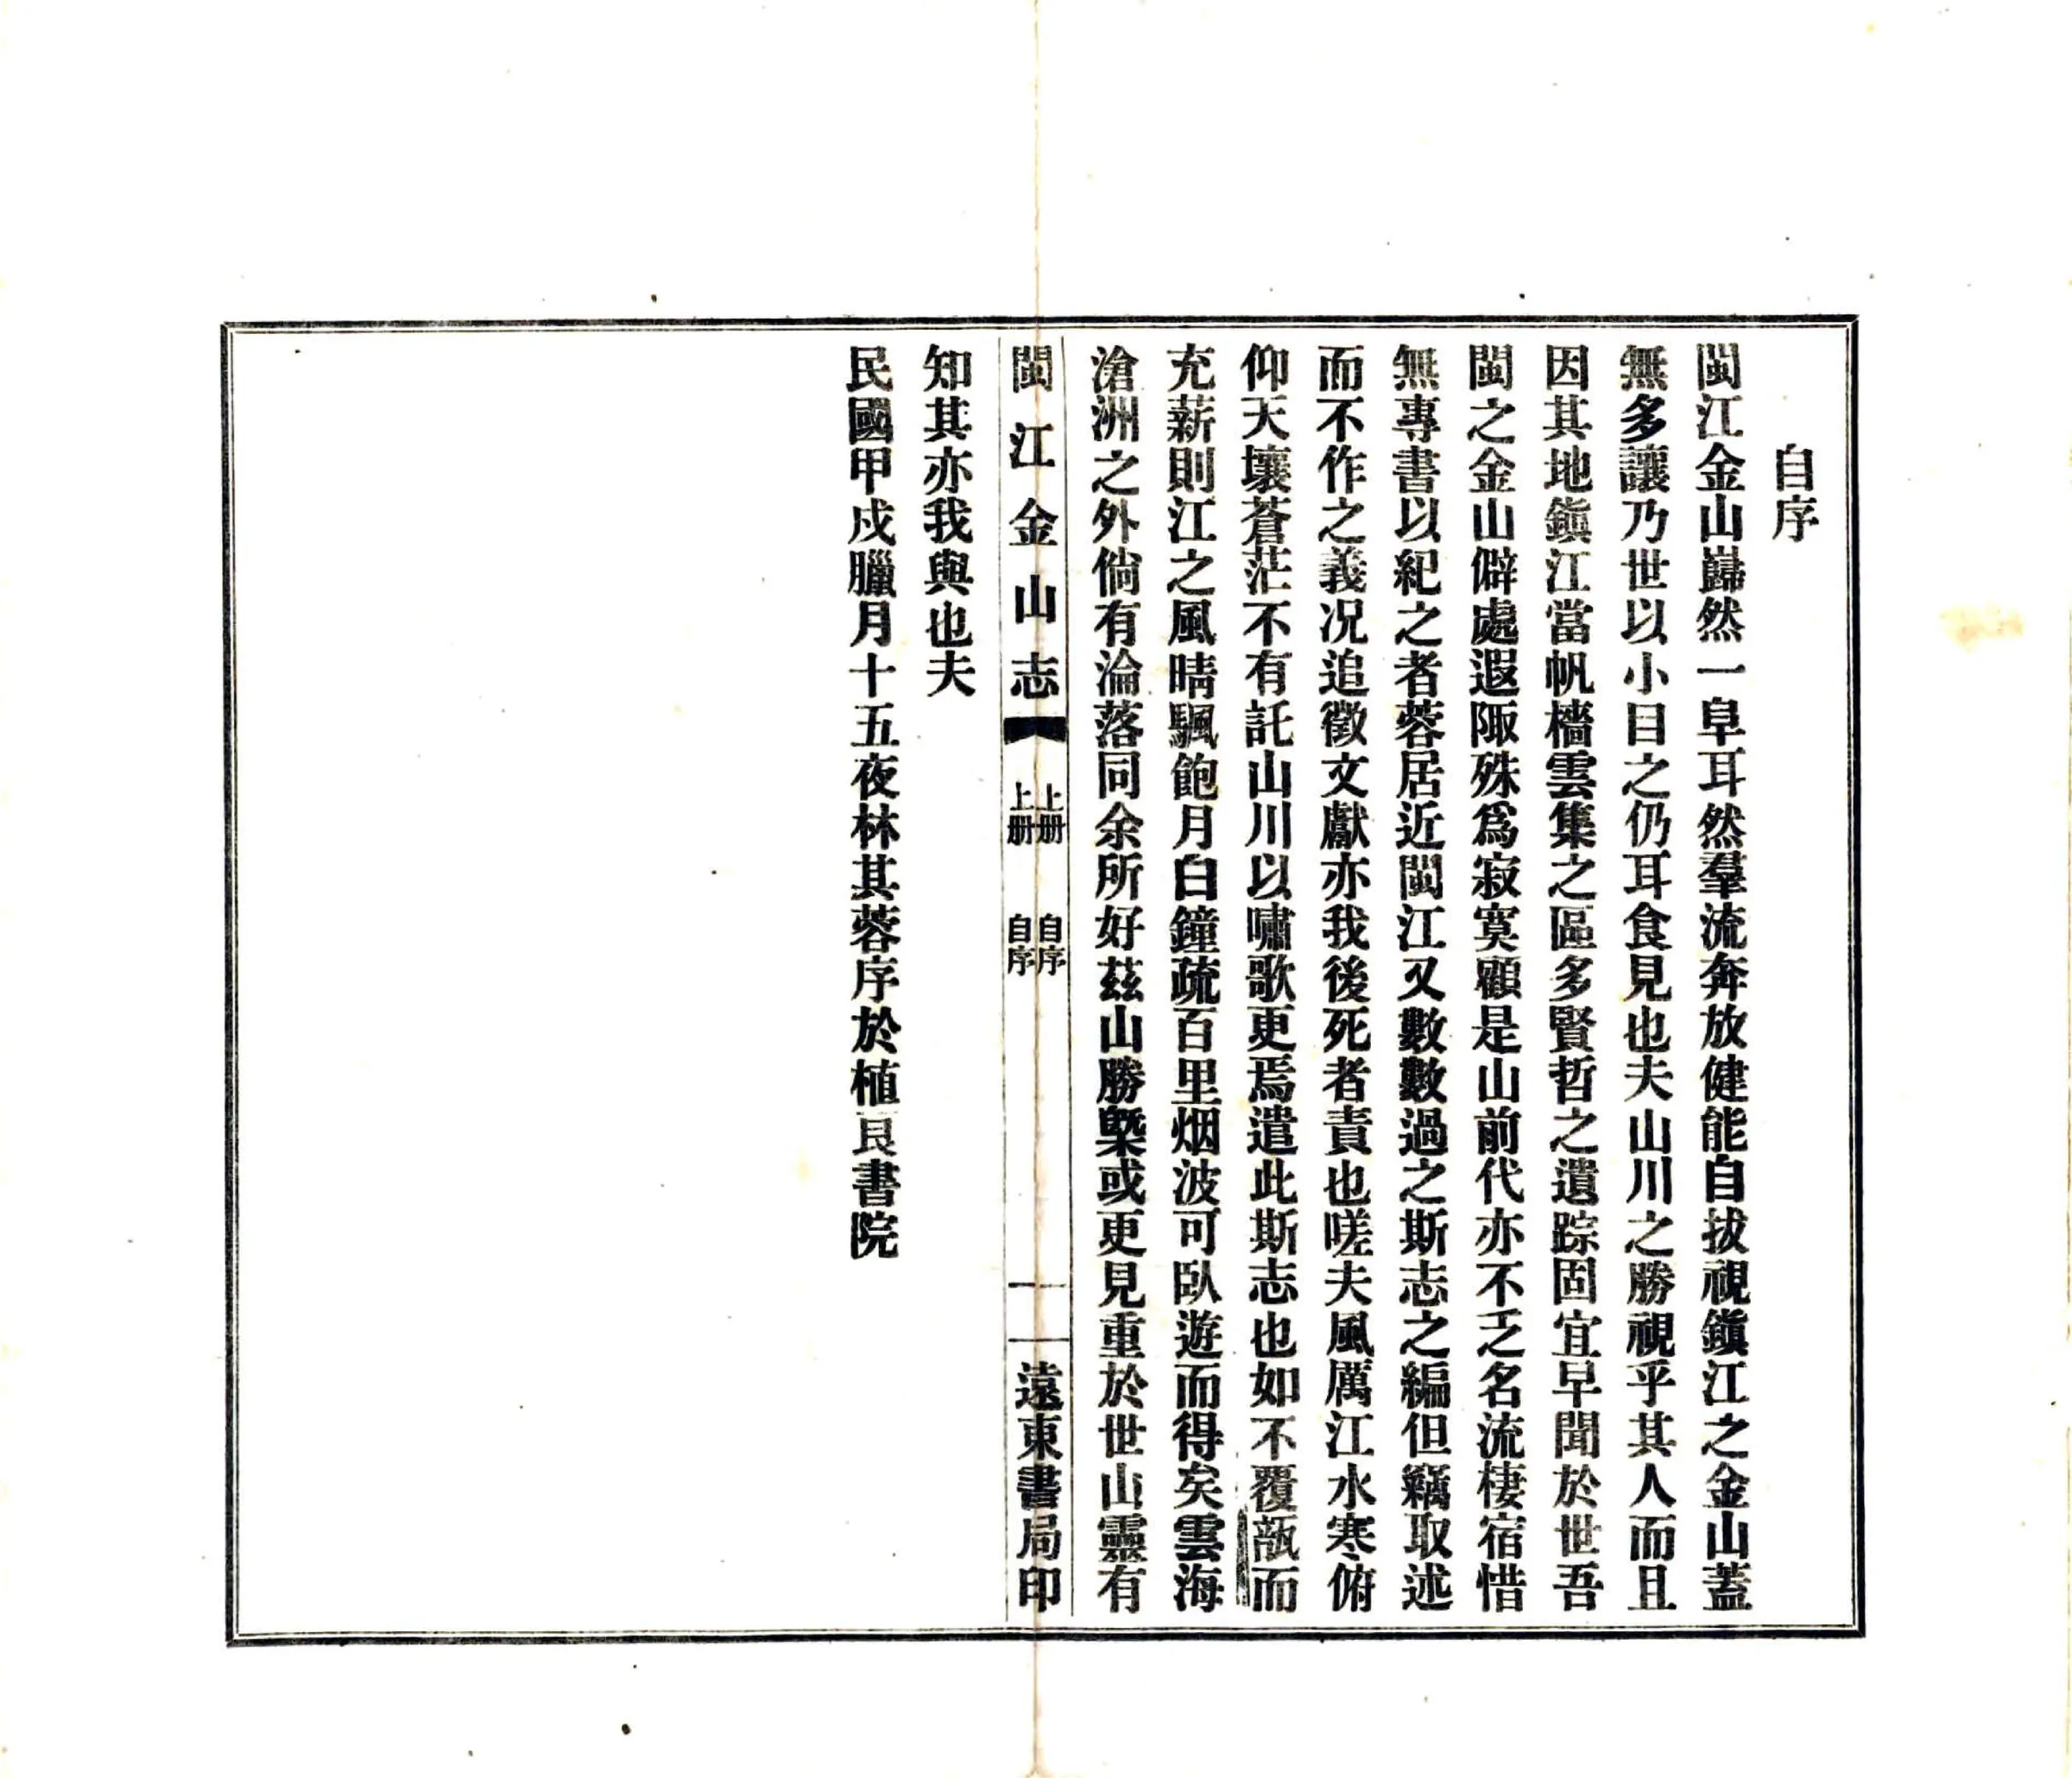 自序
閩江金山巋然一阜耳然羣流奔放健能自拔視鎭江之金山蓋
無多讓乃世以小目之仍耳食見也夫山川之勝視乎其人而且
因其地鎭江當帆檣雲集之區多賢哲之遺踪固宜早聞於世吾
閩之金山僻處遐陬殊爲寂寞顧是山前代亦不乏名流棲宿惜
無專書以紀之者蓉居近閩江又數數過之斯志之編但竊取述
而不作之義况追徵文獻亦我後死者責也嗟夫風厲江水寒俯
仰天壤蒼茫不有託山川以嘯歌更焉遣此斯志也如不覆瓿而
充薪則江之風晴颿飽月白鐘疏百里烟波可臥遊而得矣雲海
滄洲之外倘有淪落同余所好茲山勝槩或更見重於世山靈有
閩江金山志
上册 上册
自序 自序
一 一
遠東書局印
知其亦我與也夫
民國甲戌臘月十五夜林其蓉序於植艮書院